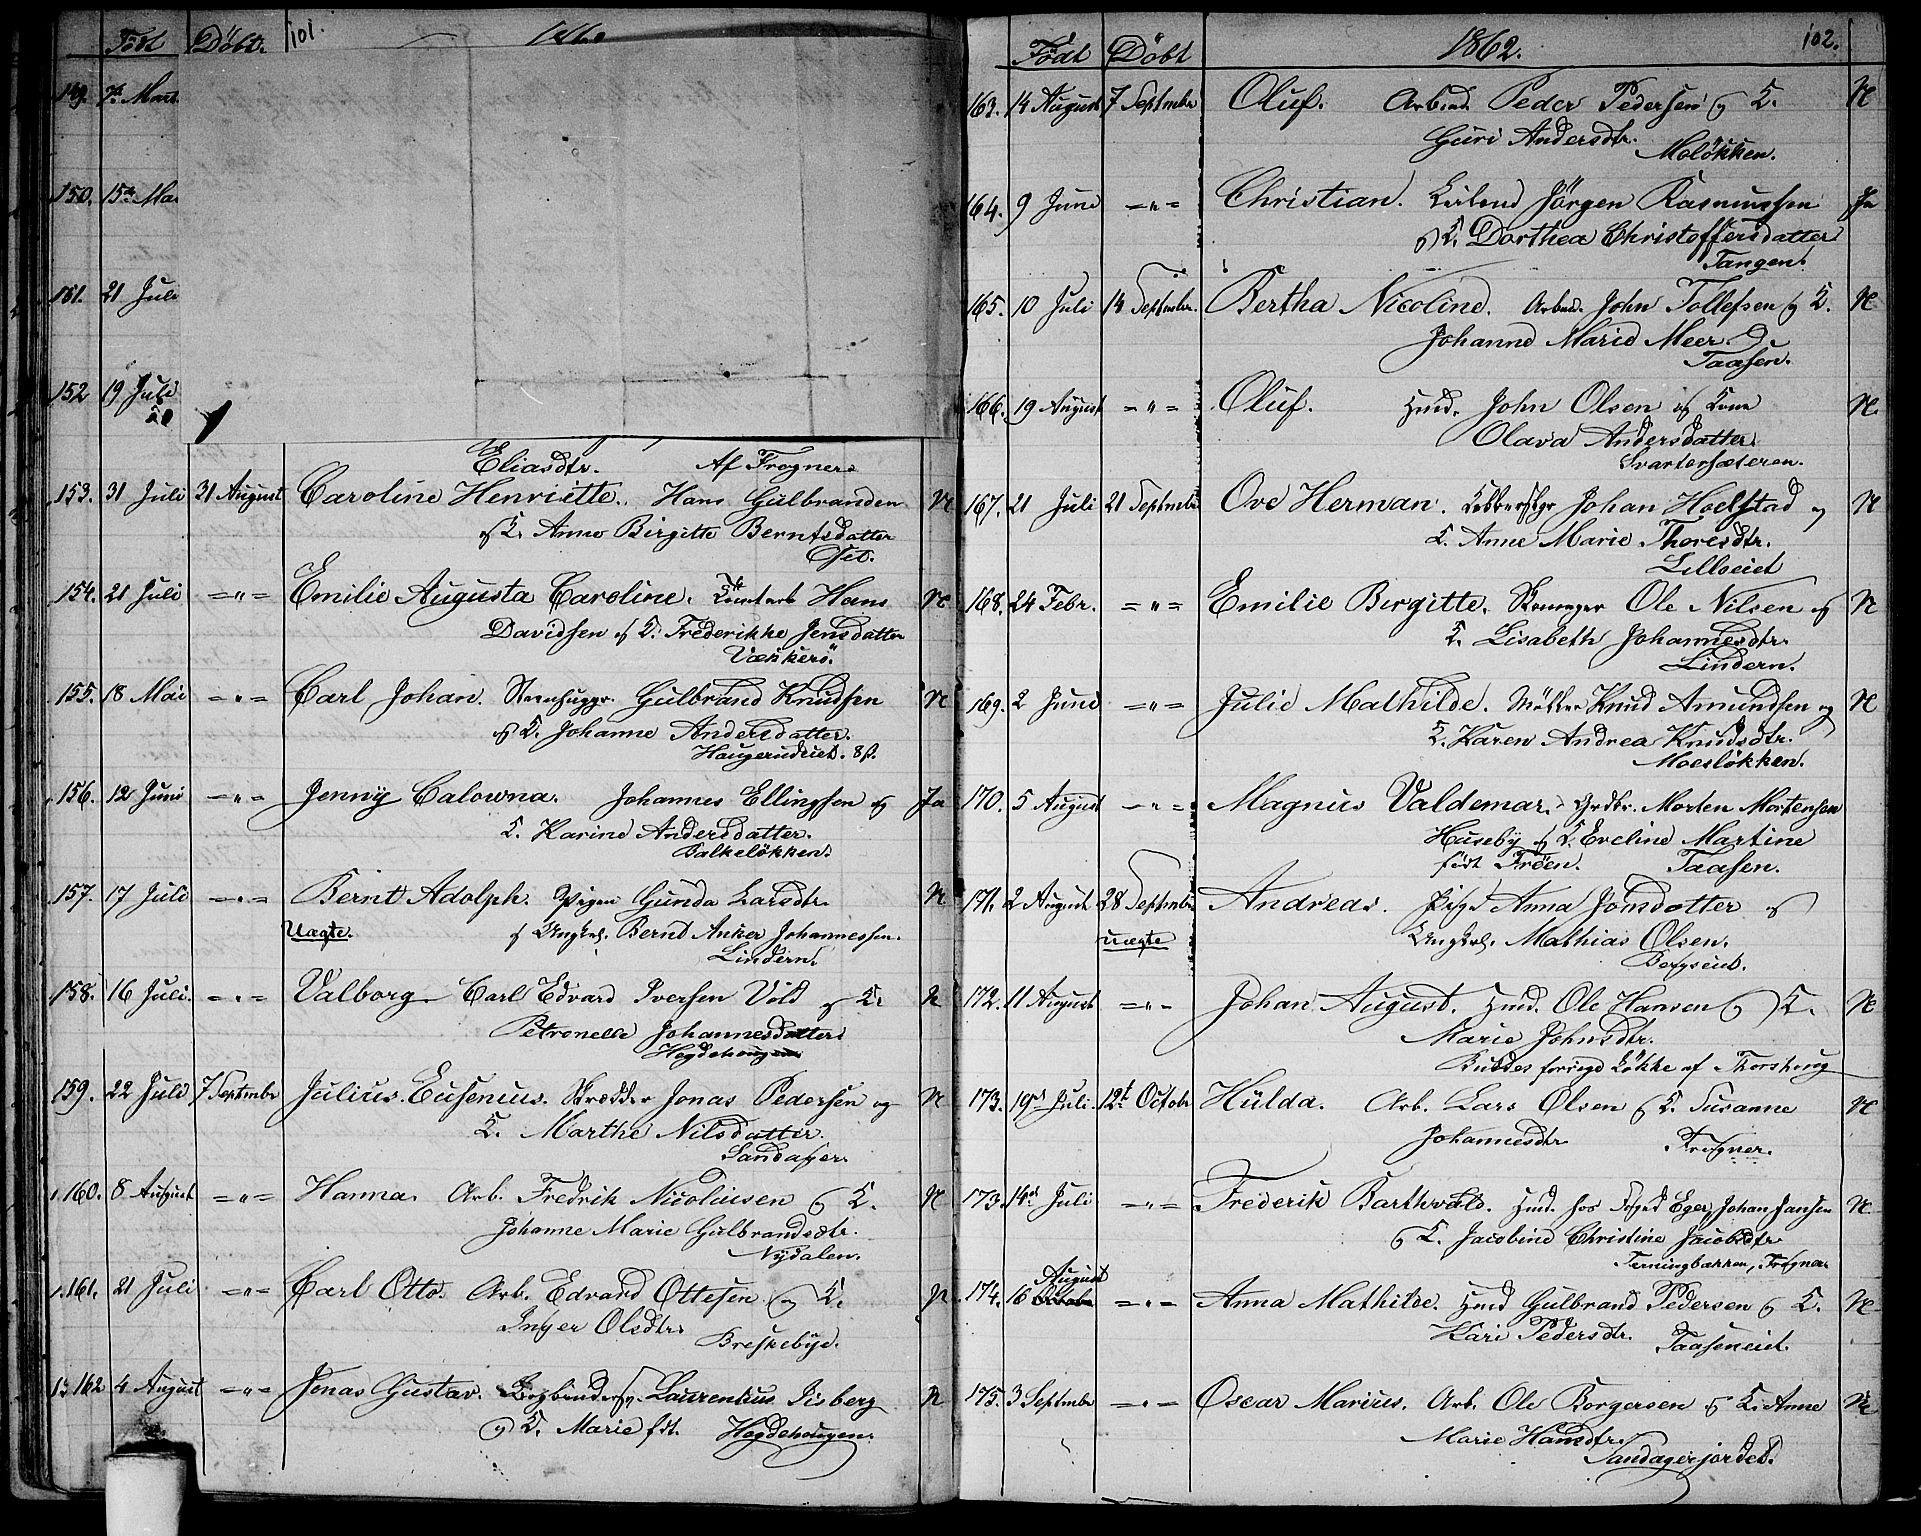 Født Døbt. 101.
149. 7de Mart
150. 15de Ma
151. 21 Juli
152 19 Juli
Eliasdtr. Af Frogner
153. 31 Juli 31 August Caroline Henriette. Hans Gulbrandsen N
og K. Anne Birgitte Berntsdatter
Oset.
154. 21 Juli —"— Emilie Augusta Caroline. Hans N
Davidsen og K. Frederikke Jensdatter
Vækkerö.
155. 18 Mai —"— Carl Johan. Steenhuggr. Gulbrand Knudsen N
og K. Johanne Andersdatter.
Haugerudeiet.
156. 12 Juni —"— Jenny Calowna. Johannes Ellingsen og Ja
K. Karine Andersdatter.
Balkeløkken.
157. 17 Juli —"— Bernt Adolph. Pigen Gunda Larsdtr. N
Uægte. og Ungkrl. Bernt Anker Johannessen.
Lindern.
158. 16 Juli. —"— Valborg Carl Edvard Iversen Vold og K. N
Petronelle Johannesdatter
Hegdehougen
159. 22 Juli 7 Septmbr Julius Eusenius. Skrædder Jonas Pedersen og N
K. Marthe Nilsdatter.
Sandager.
160. 8 August —"— Hanna. Arb. Fredrik Nicolaisen og K. N
Johanne Marie Gulbrandsdtr.
Nydalen.
161. 21 Juli —"— Carl Otto. Arb. Edvard Ottesen og K. N
Inger Olsdtr.
Breskebye.
162 4 August —"— Jonas Gustav. Bogbindersv. Laurentius Lisberg N
og K. Marie fdt. Hegdehougen.
Født Døbt 1862. 102.
163. 14 August 7 Septmbr Oluf. Arbmd. Peder Pedersen og K. N
Guri Andersdtr.
Moløkken.
164. 9 Juni —"— Christian. Jörgen Rasmussen Ja
og K. Dorthea Christoffersdatter
Tangen.
165. 10 Juli 14 Septmbr. Bertha Nicoline. Arbmd. John Tollefsen og K. N
Johanne Marie Meer.
Taasen.
166. 19 August —"— Oluf. Hmd. John Olsen og Kone N
Olava Andersdatter.
Svartorsæteren.
167. 21 Juli 21 Septmbr Ove Herman. Johan Hoelstad og N
K. Anne Marie Thoresdtr.
Lilloeiet
168. 24 Febr. —"— Emilie Birgitte. Skomager Ole Nilsen og N
K. Lisabeth Johannesdtr.
Lindern.
169. 2 Juni —"— Julie Mathilde. Knud Amundsen og N
K. Karen Andrea Knudsdtr.
Moesløkken.
170. 5 August —"— Magnus Valdemar. Grdbr. Morten Mortensen
Huseby og K. Eveline Martine
født Frøen. Taasen.
171. 2 August 28 Septmbr Andreas. Pige Anna Jonsdotter og
uægte Ungkrl. Mathias Olsen.
Bergseiet.
172. 11 August —"— Johan August. Hmd. Ole Hansen og K. N
Marie Johnsdtr.
Buddes forrige Løkke af Thorshoug
173. 19de Juli. 12t. Octobr Hulda. Arb. Lars Olsen og K. Susanne N
Johannesdtr Frogner.
173 14de Juli —"— Frederik Barthvald. Hmd. hos Eger, Johan Jansen N.
og K. Jacobine Christine Jacobsdtr
Terningbakken, Frogner
August
174. 16 —"— Anna Mathilde. Hmd Gulbrand Pedersen og K. N
Kari Pedersdtr. Taaseneiet.
175. 3 Septmbr —"— Oscar Marius. Arb. Ole Borgersen og K. Anne N
Marie Hansdtr.
Sandagerjordet.